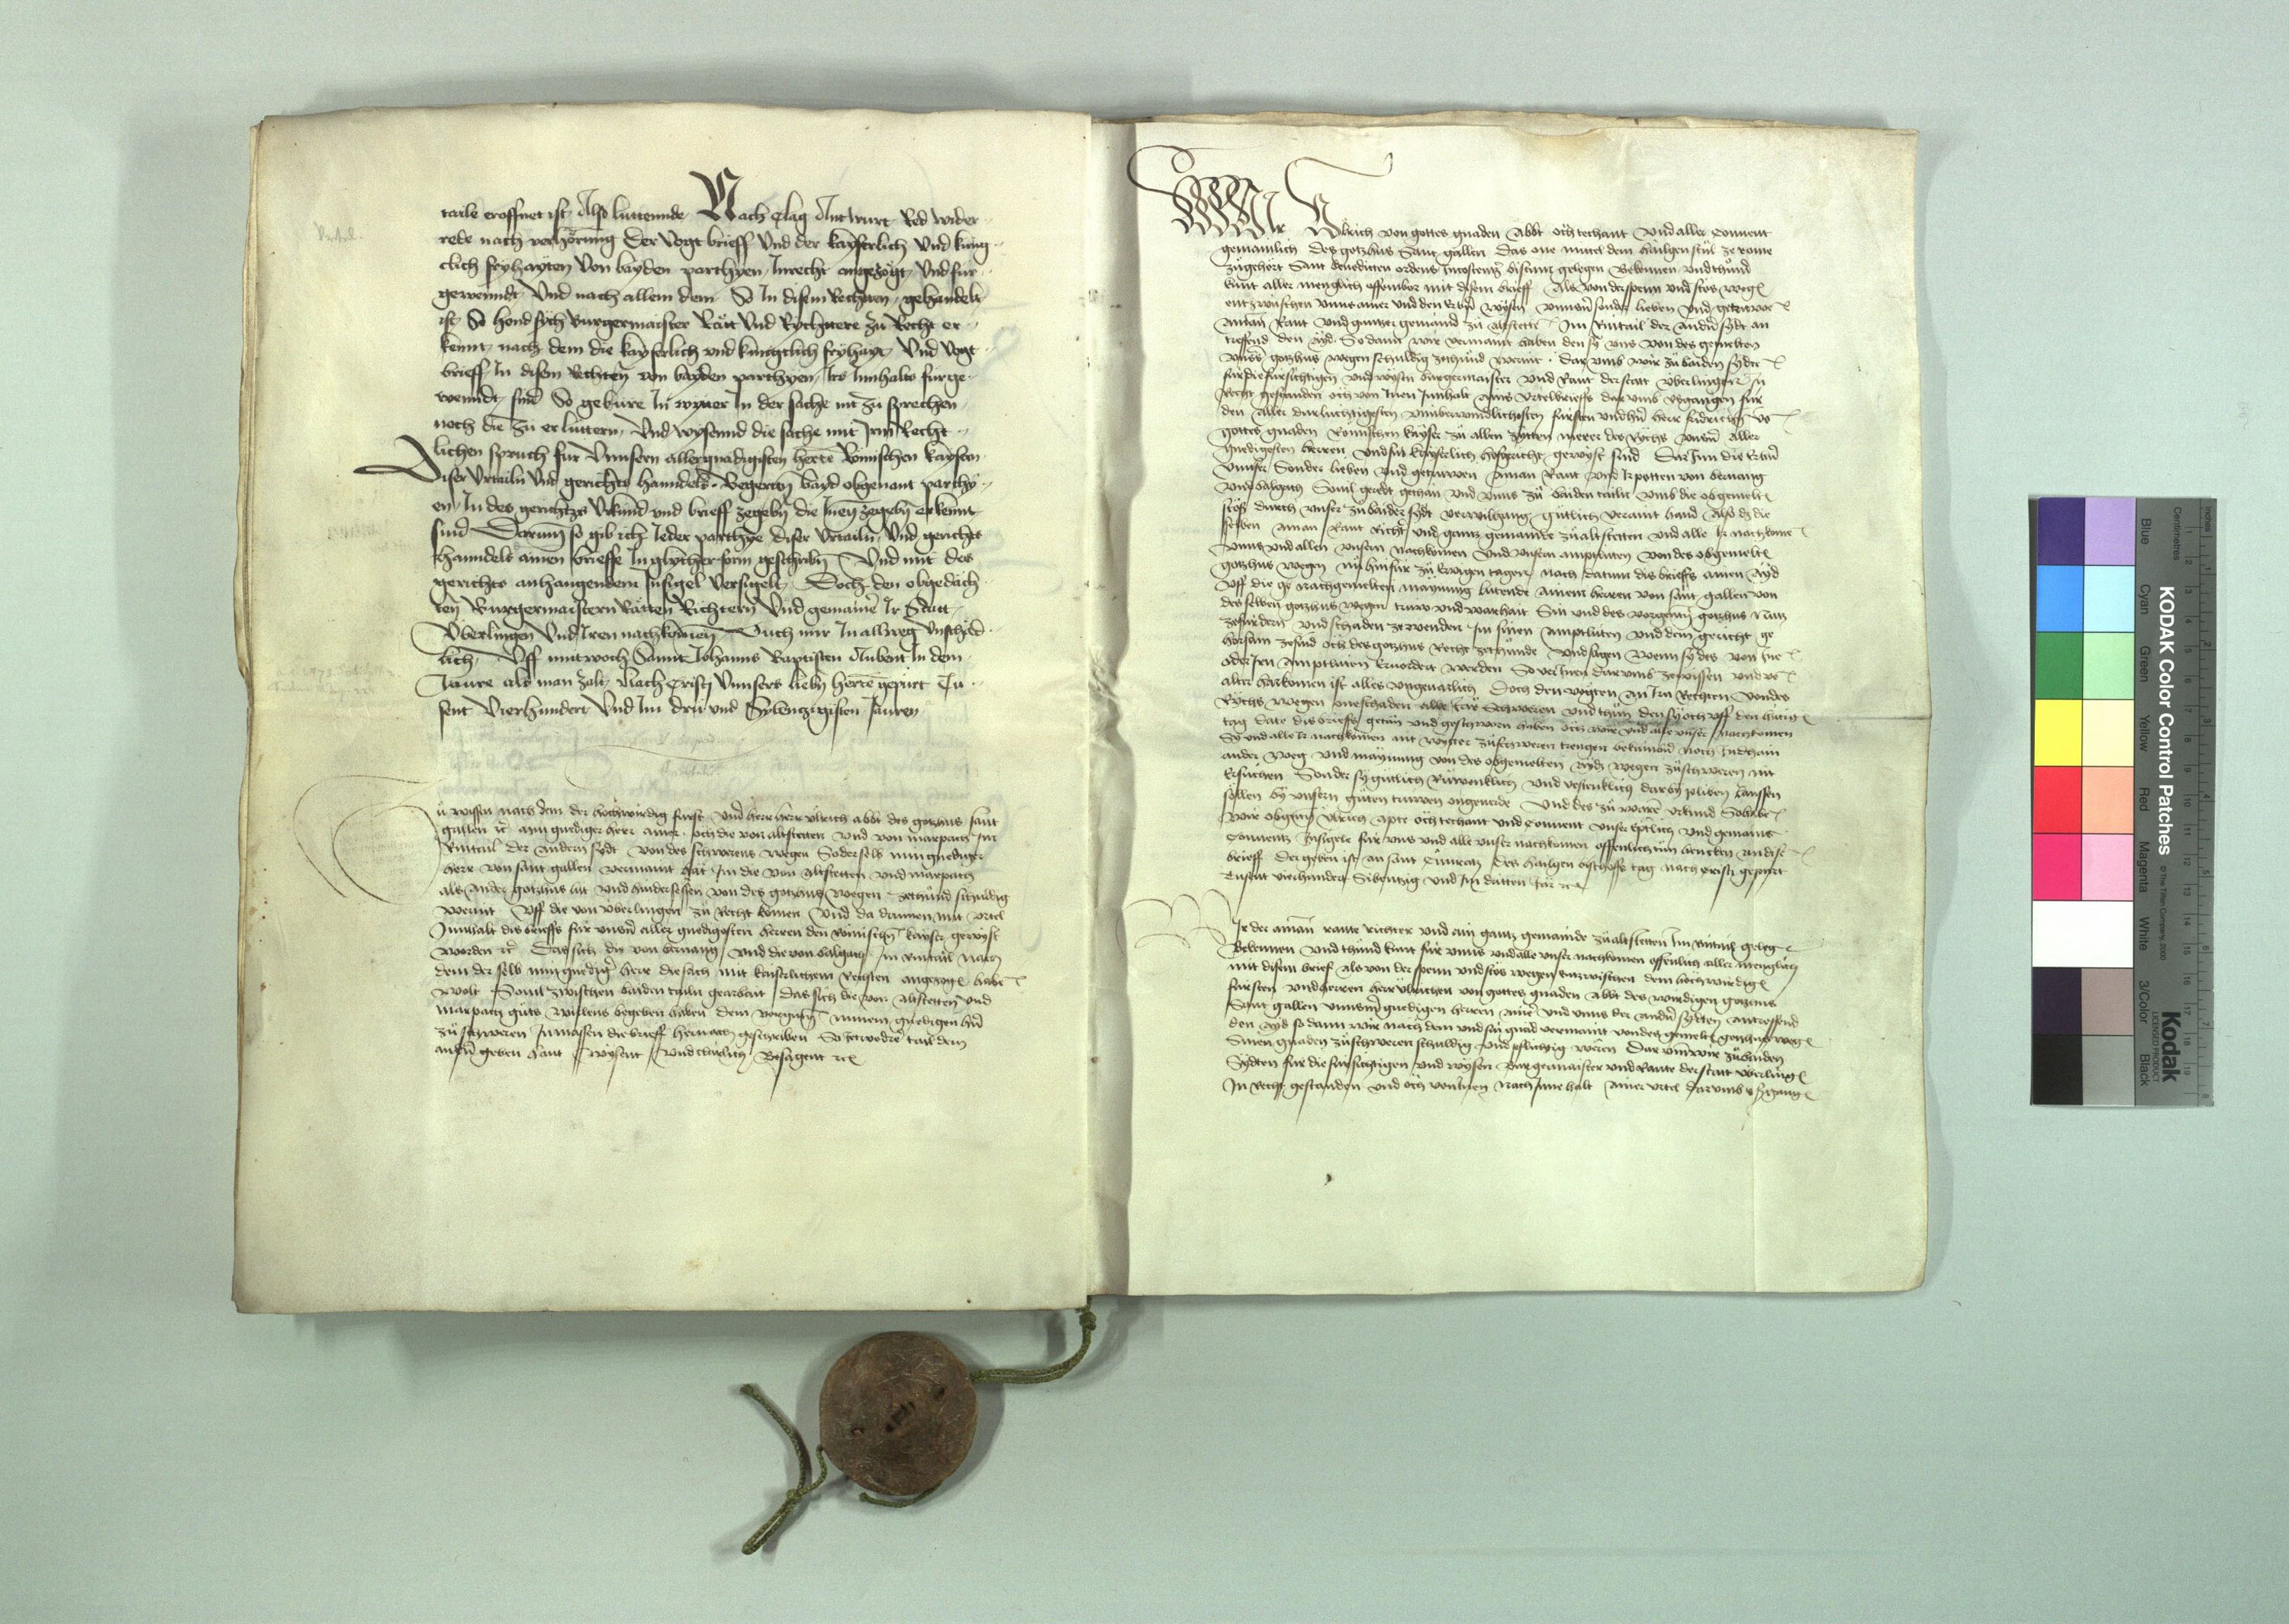 taile eroffnet ist Also luttennde Nach clag Antwurt Red wider
rede nach verhörnung Der Vogt brieff Vnd der kayserlich Vnd küng
clich fryhayten Von bayden parthyen Inrecht angezögt Vnd für
gewenndt Vnd nach allem dem So In disem Rechten gehandelt
ist So hond sich Burgermaister Rätt Vnd Rychtere zu Recht er
kennt nach dem die kayserlich vnd küngclich fryhayt Vnd Vogt
brieff In disem Rechten von bayden parthyen Irs Innhalts fürge
wenndt sind So gebüre In wyter In der sache nit zu sprechen
noch die zu erlüttern Vnd wysennd die sache mit Irm Recht
lichen spruch für Vnnsern allergnädigisten herre Römschen kaysern
Diser Vrtailn Vnd gerichts hanndels Begerten bayd obgenant parthy
en In des gerichtzs Vrkund vnd brieff zegeben die Inen zegeben erkennt
sind Darumb so gib ich Ieder parthye diser Vrtailn Vnd gerichts
hanndels ainen brieffe In glycher form geschriben Vnd mit des
gerichts anhangendem Insigel Versigelt Doch den obgedach
ten Burgermaistern Rätten Richtern Vnd gemainer Ir Statt
Überlingen Vnd Iren nachkomen Ouch mir In allweg Vnschäd
lich Vff mitwoch Sannt Johanns Baptisten Aubent In dem
Jaure als man zalt Nach Cristi Vnnsers lieben herren gepurt Tu
sent Vierhundert Vnd Im drü vnd Sybentzigisten Jauren
ü wissen nach dem der hochwirdig fürst vnd herr herr vlrich abbt des gotzhus sant
gallen etc min gnediger herr ainer och die von altstetten vnd von marpach Im
Rintail der andern sydt von des schwerens wegen So der selb min gnediger
herr von sant gallen vermaint hät In die von altstetten vnd marpach
als ander gotzhus lüt vnd hindersessen von des gotzhus wegen zethund schuldig
werint vff die von Überlingen zu Recht komen vnd da dannen mit vrtel
Innhalt dis brieffs für vnsern aller gnedigosten herren den römischen kayser gewyst
worden etc Das sich die von bernang vnd die von balgach Im Rintail nach
dem der selb min gnediger herr die sach mit kaiserlichem Rechten angezogen habe
wolt Souil zwischen baiden tailn gearbait das sich die von altstetten vnd
marpach güts willens begeben haben dem minem gnedigen hern
zu schweren Inmassen die brieff hernach geschriben So yetwedrer tail dem
andern geben haut wysent vnd clärlich besagent etc
Wir Vlrich von gottes gnaden Abbt och techant vnd aller Conuent
gemainlich des gotzhus Sant gallen Das one mittel dem hailgen stul ze rome
zugehört Sant benedicten ordens In costentzer bistum gelegen Bekennen vnd thund
kunt aller menglich offembar mit disem brieff Als von der spenn vnd stös wegen
entzwüschen vnns ainer vnd den Ersamen wysen vnnsern sonder lieben vnd getrüwen
Aman Raut vnd gantzer gemaind zu altstetten Im Rintail der andern sydt an
treffend den ayd So dann wir vermaint haben den sy vns von des gemelten
vnsers gotzhus wegen schuldig zethund werint Dar vmb wir zu baiden sydten
für die fürsichtigen vnd wysen burgermaister vnd Raut der statt überlingen In
Recht gestanden och von Inen Innhalt ains vrtelbrieffs dar vmb vsgangen für
den Aller durlüchtigesten vnüberwindlichosten fürsten vnd hern herr fridrichen vo
gottes gnaden Römischen kayser zu allen zytten merer des Rychs vnsern Aller
gnedigosten herren vnd sin kayserlich hofgericht gewyst sind Dar Inn die Ersamen
vnnser Sonder lieben vnd getrüwen Aman Raut vnd die potten von bernang
vnd balgach Souil geredt gethan vnd vnns zu baiden tailn vmb die obgemelten
stöß durch vnser zu baider sydt verwilgung gütlich veraint hand Also dz die
selben Aman Raut Richter vnd gantz gemainde zu altstetten vnd alle Ir nachkomen
vnns vnd allen vnsern nachkomen vnd vnsern amptlüten von des obgemelten
gotzhus wegen nu hinfür zu ewigen tagen nach datum dis brieffs ainen ayd
vff die nachgemelten maynung lutende Ainem herren von sant gallen von
des selben gotzhus wegen truw vnd warhait Sin vnd des vorgemelten gotzhus nutz
zefürdern vnd schaden zewenden Im sinen Amptlüten vnd dem gericht ge
horsam zesind och des gotzhus Recht zethunde vnd sagen wenn sy des von Ine
oder Irn Amptlüten Eruordert werden So ver Inen dar vmb ze wissen vnd vo
alter harkomen ist alles vngeuarlich Doch den vögten An Irn Rechten von des
Rychs wegen one schaden schweren vnd thun den sy och vff den hütigen
tag date dis brieffs getun vnd geschworn haben och wir vnd alle vnser nachkomen
Sy vnd alle Ir nachkomen nit wytter zu schweren trengen bekümern noch In dehain
ander weg vnd maynung von des obgemelten ayds wegen zu schweren nit
Ersuchen Sonder sy gütlich Rüwenklich vnd vestenklich dar by pliben laussen
söllen by vnsern guten trüwen ongeuerde Vnd des zu warem vrkund So haben
wir obgemelten Vlrich apte och techant vnd Conuent vnser Eptlich vnd gemains
Conuentz Insigele für vns vnd alle vnser nachkomen offenlich tun hencken an dise
brieff Der geben ist an sant Cunratz des hailgen bischoffs tag nach cristi gepurt
Tusent vierhundert Sibentzig vnd Im dritten Jar etc
Wir der aman raute richter vnd ain gantz gemainde zu altstetten Im Rintail gelegen
Bekennen vnd thund kunt für vnns vnd alle vnser nachkomen offenlich aller menglich
mit disem brief als von der spenn vnd stös wegen entzwischen dem hochwirdigen
fürsten vnd herren herr vlrichen von gottes gnaden abbt des wirdigen gotzhus
Sant gallen vnnserm gnedigen herren ains vnd vnns der andern sydten antreffend
den ayd so dann wir nach dem vnd sin gnad vermaint von des gemelten gotzhus wegen
Sinen gnaden zu schweren schuldig vnd pflichtig wären Dar vmb wir zu baiden
Sydten für die fürsichtigen vnd wysen Burgermaister vnd Raute der statt überlingen
In Recht gestanden vnd och von Inen nach Inne halt ainer vrtel dar vmb vßgangen